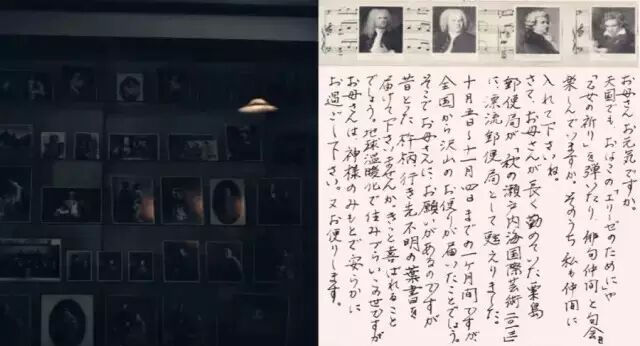 お母さんお元気ですか。
天国でも、おはこのエリーゼのためにや
「乙女の祈り」を弾いたり、俳句仲間と句会を
楽しんでいますか。そのうち私も仲間に
入れて下さいね。
さて、お母さんが長く勤めていた粟島
郵便局が「秋の瀬戸内海国際芸術
に、漂流郵便局として甦えりました。
十月五日〜十一月四日までの一ヶ月間ですが、
全国から沢山のお便りが届いたことでしょう。
そこでお母さんに、お願いがあるのですが
昔とった杵柄、行き先不明の葉書を
届けて下さいませんか。きっと喜ばれること
でしょう。地球温暖化で住みずらいこの世ですが
お母さんは、神様のみもとで安らかに
お過ごし下さい。又お便りします。